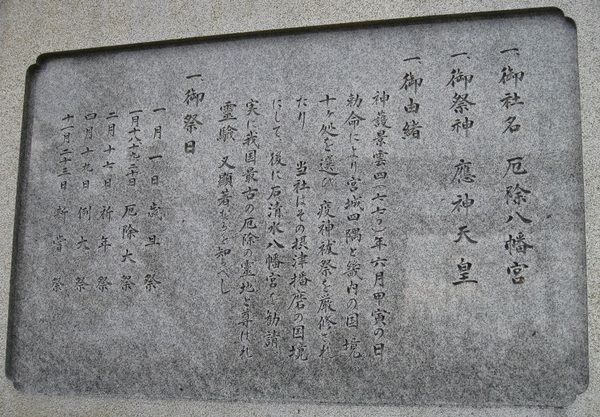 一、御社名 厄除八幡宮
一、御祭神 應神天皇
一、御由緒
神護景雲四(七七〇)年六月甲寅の日
勅命により宮城四隅と畿内の国境
十ヶ処を選び 疫神祓祭を厳修され
たり 当社はその摂津播磨の国境
にして 後に石清水八幡宮を勧請
実に我国最古の厄除の霊地と尊ばれ
霊験 又顕著なるを知べし
一、御祭日
一月一日 歳旦祭
一月十八十九二十日 厄除大祭
二月十七日 祈年祭
四月十九日 例大祭
十一月二十三日 新嘗祭